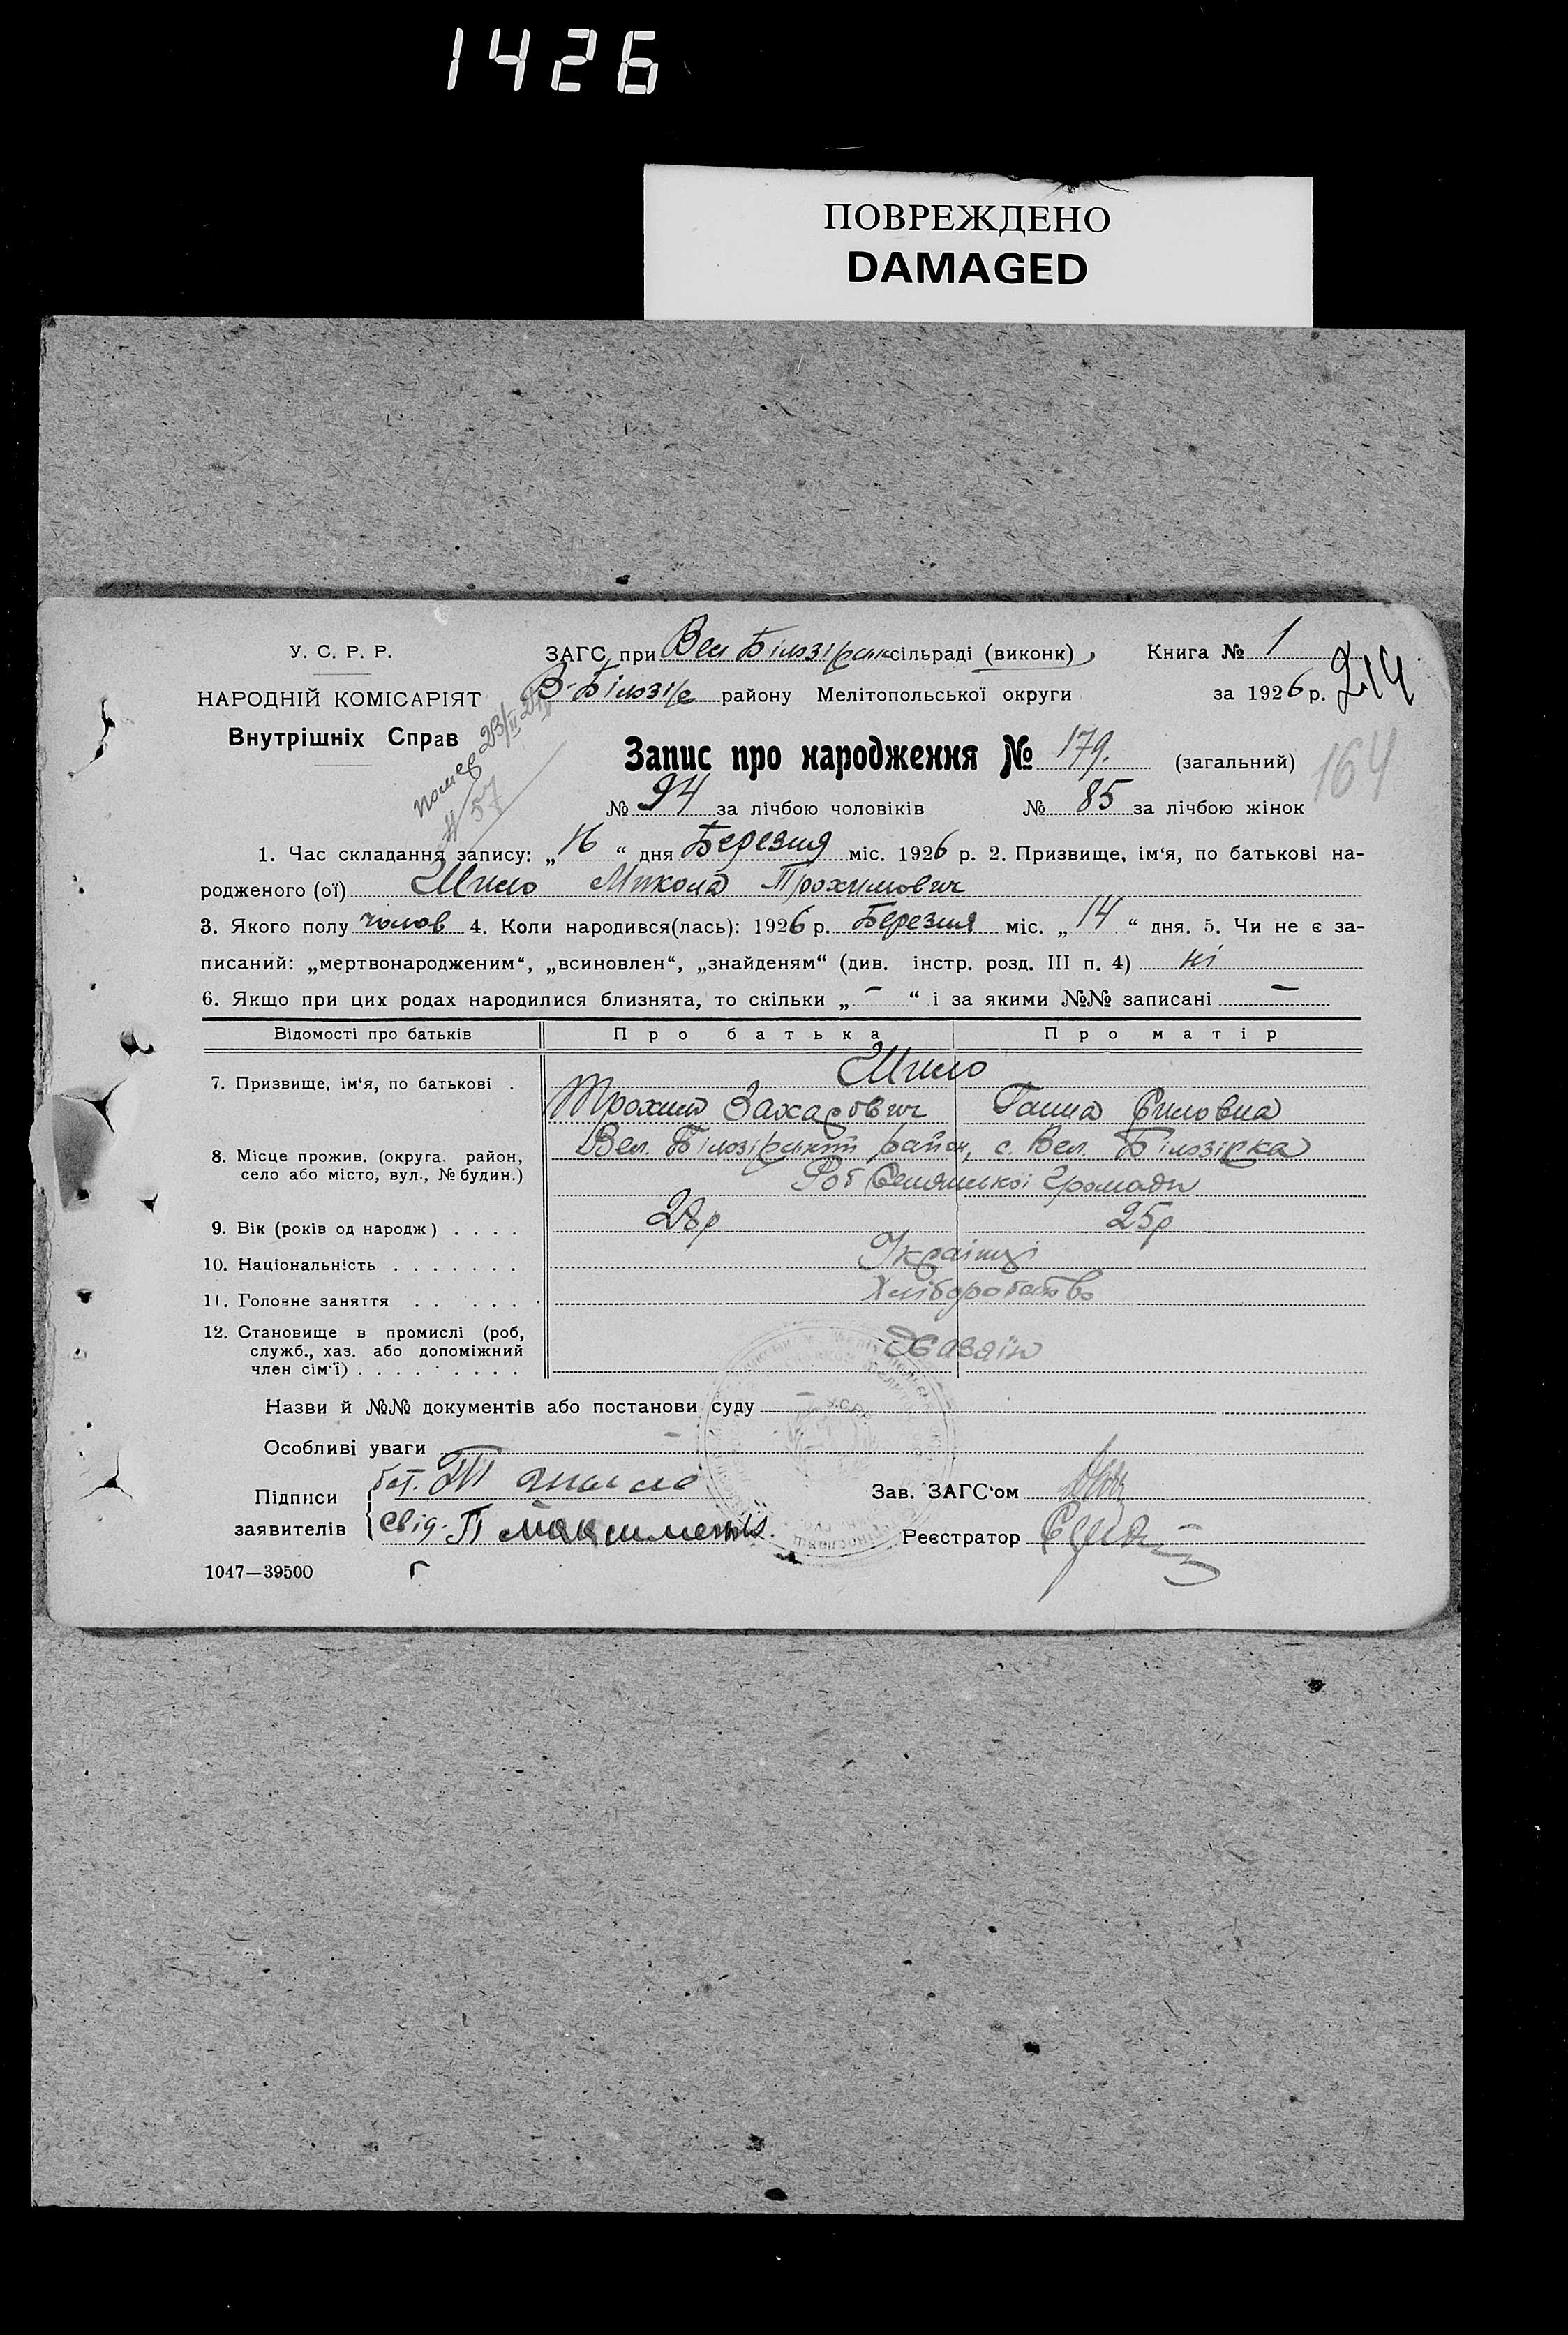 1426
ПОВРЕЖДЕНО
DAMAGED
У. С. Р. Р.
НАРОДНІЙ КОМІСАРІЯТ
Внутрішніх Справ
ЗАГС при Вел Білозірськ сільраді (виконк)
В-Білозір району Мелітопольської округи
Книга № 1
за 1926 р. 214
помер 23/II
№ 57
Запис про народження № 179. (загальний)
164
№ 94 за лічбою чоловіків № 85 за лічбою жінок
1. Час складання запису: „16“ дня Березня міс. 1926 р. 2. Призвище, ім‘я, по батькові на-
родженого (ої) Шило Микола Трохимович
3. Якого полу чолов 4. Коли народився(лась): 1926 р. Березня міс. „14“ дня. 5. Чи не є за-
писаний: „мертвонародженим“, „всиновлен“, „знайденям“ (див. інстр. розд. III п. 4) ні
6. Якщо при цих родах народилися близнята, то скільки „ – “ і за якими №№ записані –
Відомості про батьків Про батька Про матір
Шило
7. Призвище, ім‘я, по батькові . Трохим Захарович Ганна Силовна
8. Місце прожив. (округа. район, Вел. Білозірський район, с. Вел. Білозірка
село або місто, вул., № будин.) Громади
9. Вік (років од народж) . . . . 28р 25р
10. Національність . . . . . . . Українці
11. Головне заняття . . . . . . Хліборобство
12. Становище в промислі (роб,
служб., хаз. або допоміжний Хазяїн
член сім‘ї) . . . . . . . . .
Назви й №№ документів або постанови суду –
Особливі уваги –
Підписи бат. Т Шило Зав. ЗАГС‘ом
заявителів свід. П Максименко. Реєстратор
1047—39500